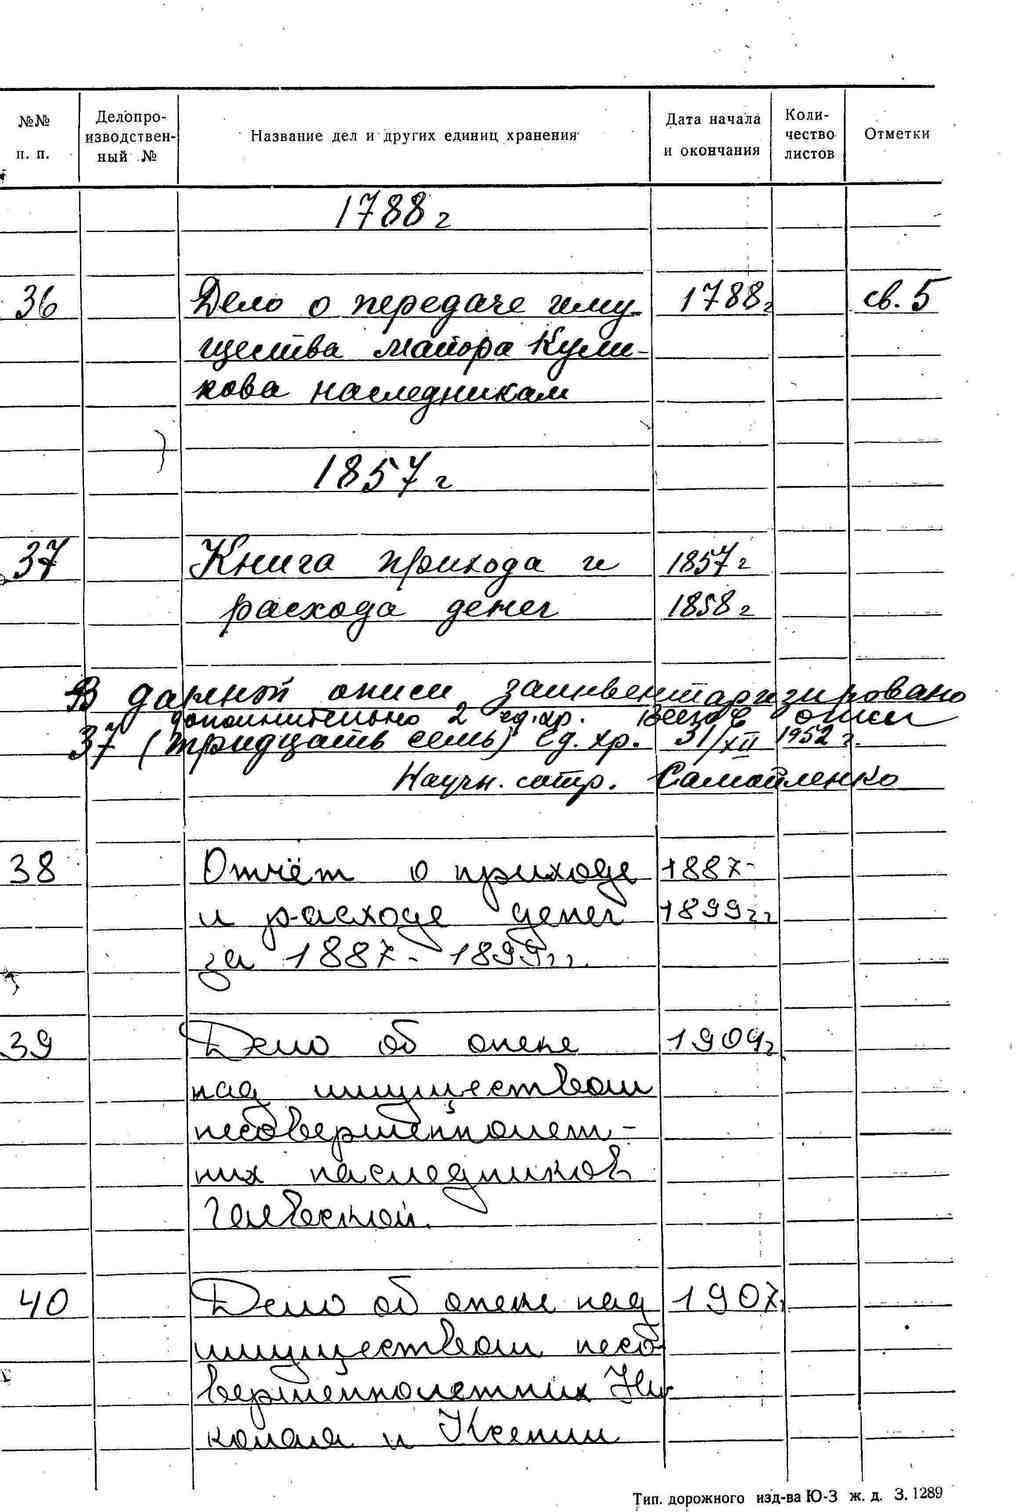 №№ п. п. Делопроизводственный № Название дел и других единиц хранения Дата начала и окончания Количество листов Отметки
1788 г
36 Дело о передаче иму- 1788 г св. 5
щества майора Кули-
кова наследникам
1857 г
37 Книга прихода и 1857 г
расхода денег 1858 г
В данной описи заинвентаризировано
дополнительно 2 ед. хр. Всего в описи
37 (тридцать семь) ед. хр. 31/XII 1952 г.
Научн. сотр. Самойленко
38 Отчёт о приходе 1887-
и расходе денег 1899 гг
за 1887 - 1899 гг.
39 Дело об опеке 1909 г
над имуществом
несовершеннолет-
них наследников
40 Дело об опеке над 1907 г
имуществом несо-
вершеннолетних Ни-
колая и Ксении
Тип. дорожного изд-ва Ю-З ж. д. З. 1289